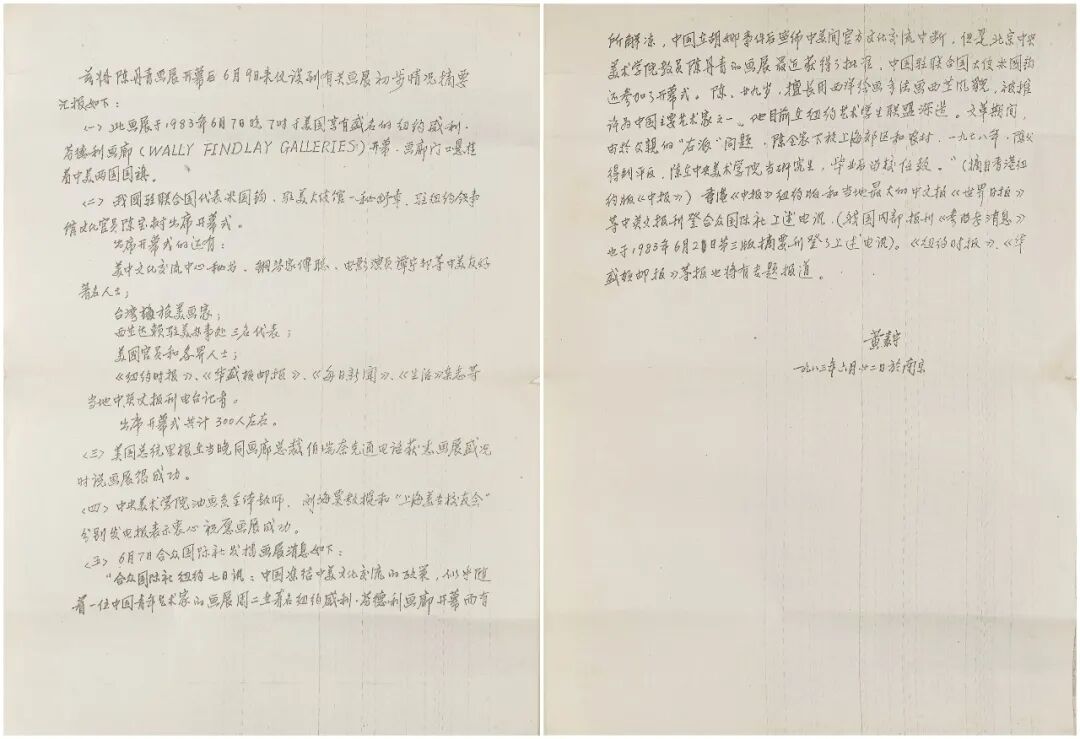 兹将陈丹青画展开幕后6月9日来仪谈到有关画展初步情况摘要
汇报如下：
（一）此画展于1983年6月7日晚7时于美国享有盛名的纽约威利·
芬德利画廊（WALLY FINDLAY GALLERIES）开幕．画廊门口悬挂
着中美两国国旗。
（二）我国驻联合国代表米国钧、驻美大使馆一秘 、驻纽约领事
馆文化官员陈 树出席开幕式。
出席开幕式的还有：
美中文化交流中心秘书、钢琴家傅聪、电影演员 等中美友好
著名人士；
台湾 旅美画家；
西 达赖驻美办事处三名代表；
美国官员和各界人士；
《纽约时报》、《华盛顿邮报》、《每日新闻》、《生活》杂志等
当地中英文报刊电台记者。
出席开幕式共计300人左右。
（三）美国总统里根在当晚同画廊总裁 通电话获悉画展盛况
时说画展很成功。
（四）中央美术学院油画系全体教师、刘海粟教授和“上海美专校友会”
分别发电报表示衷心祝愿画展成功。
（五）6月7日合众国际社发播画展消息如下：
“合众国际社纽约七日讯：中国冻结中美文化交流的政策，似乎随
着一位中国青年艺术家的画展周二在著名纽约威利·芬德利画廊开幕而有
所解冻，中国在胡娜事件后宣布中美间官方文化交流中断，但是北京中央
美术学院教员陈丹青的画展最近获得了批准，中国驻联合国大使米国钧
还参加了开幕式。陈，廿九岁，擅长用西洋绘画手法画西 风貌，被推
许为中国主要艺术家之一。他目前在纽约艺术学生联盟深造。文革期间，
由于父亲的“右派”问题，陈全家下放上海郊区和农村，一九七八年，陈父
得到平反，陈在中央美术学院当研究生，毕业后留校任教。”（摘自香港纽
约版《中报》）香港《中报》纽约版和当地最大的中文报《世界日报》
等中英文报刊登合众国际社上述电讯．（我国内部报刊《参考消息》
也于1983年6月20日第三版摘要刊登了上述电讯）。《纽约时报》、《华
盛顿邮报》等报也将有专题报道。
黄素宁
一九八三年六月廿二日於南京